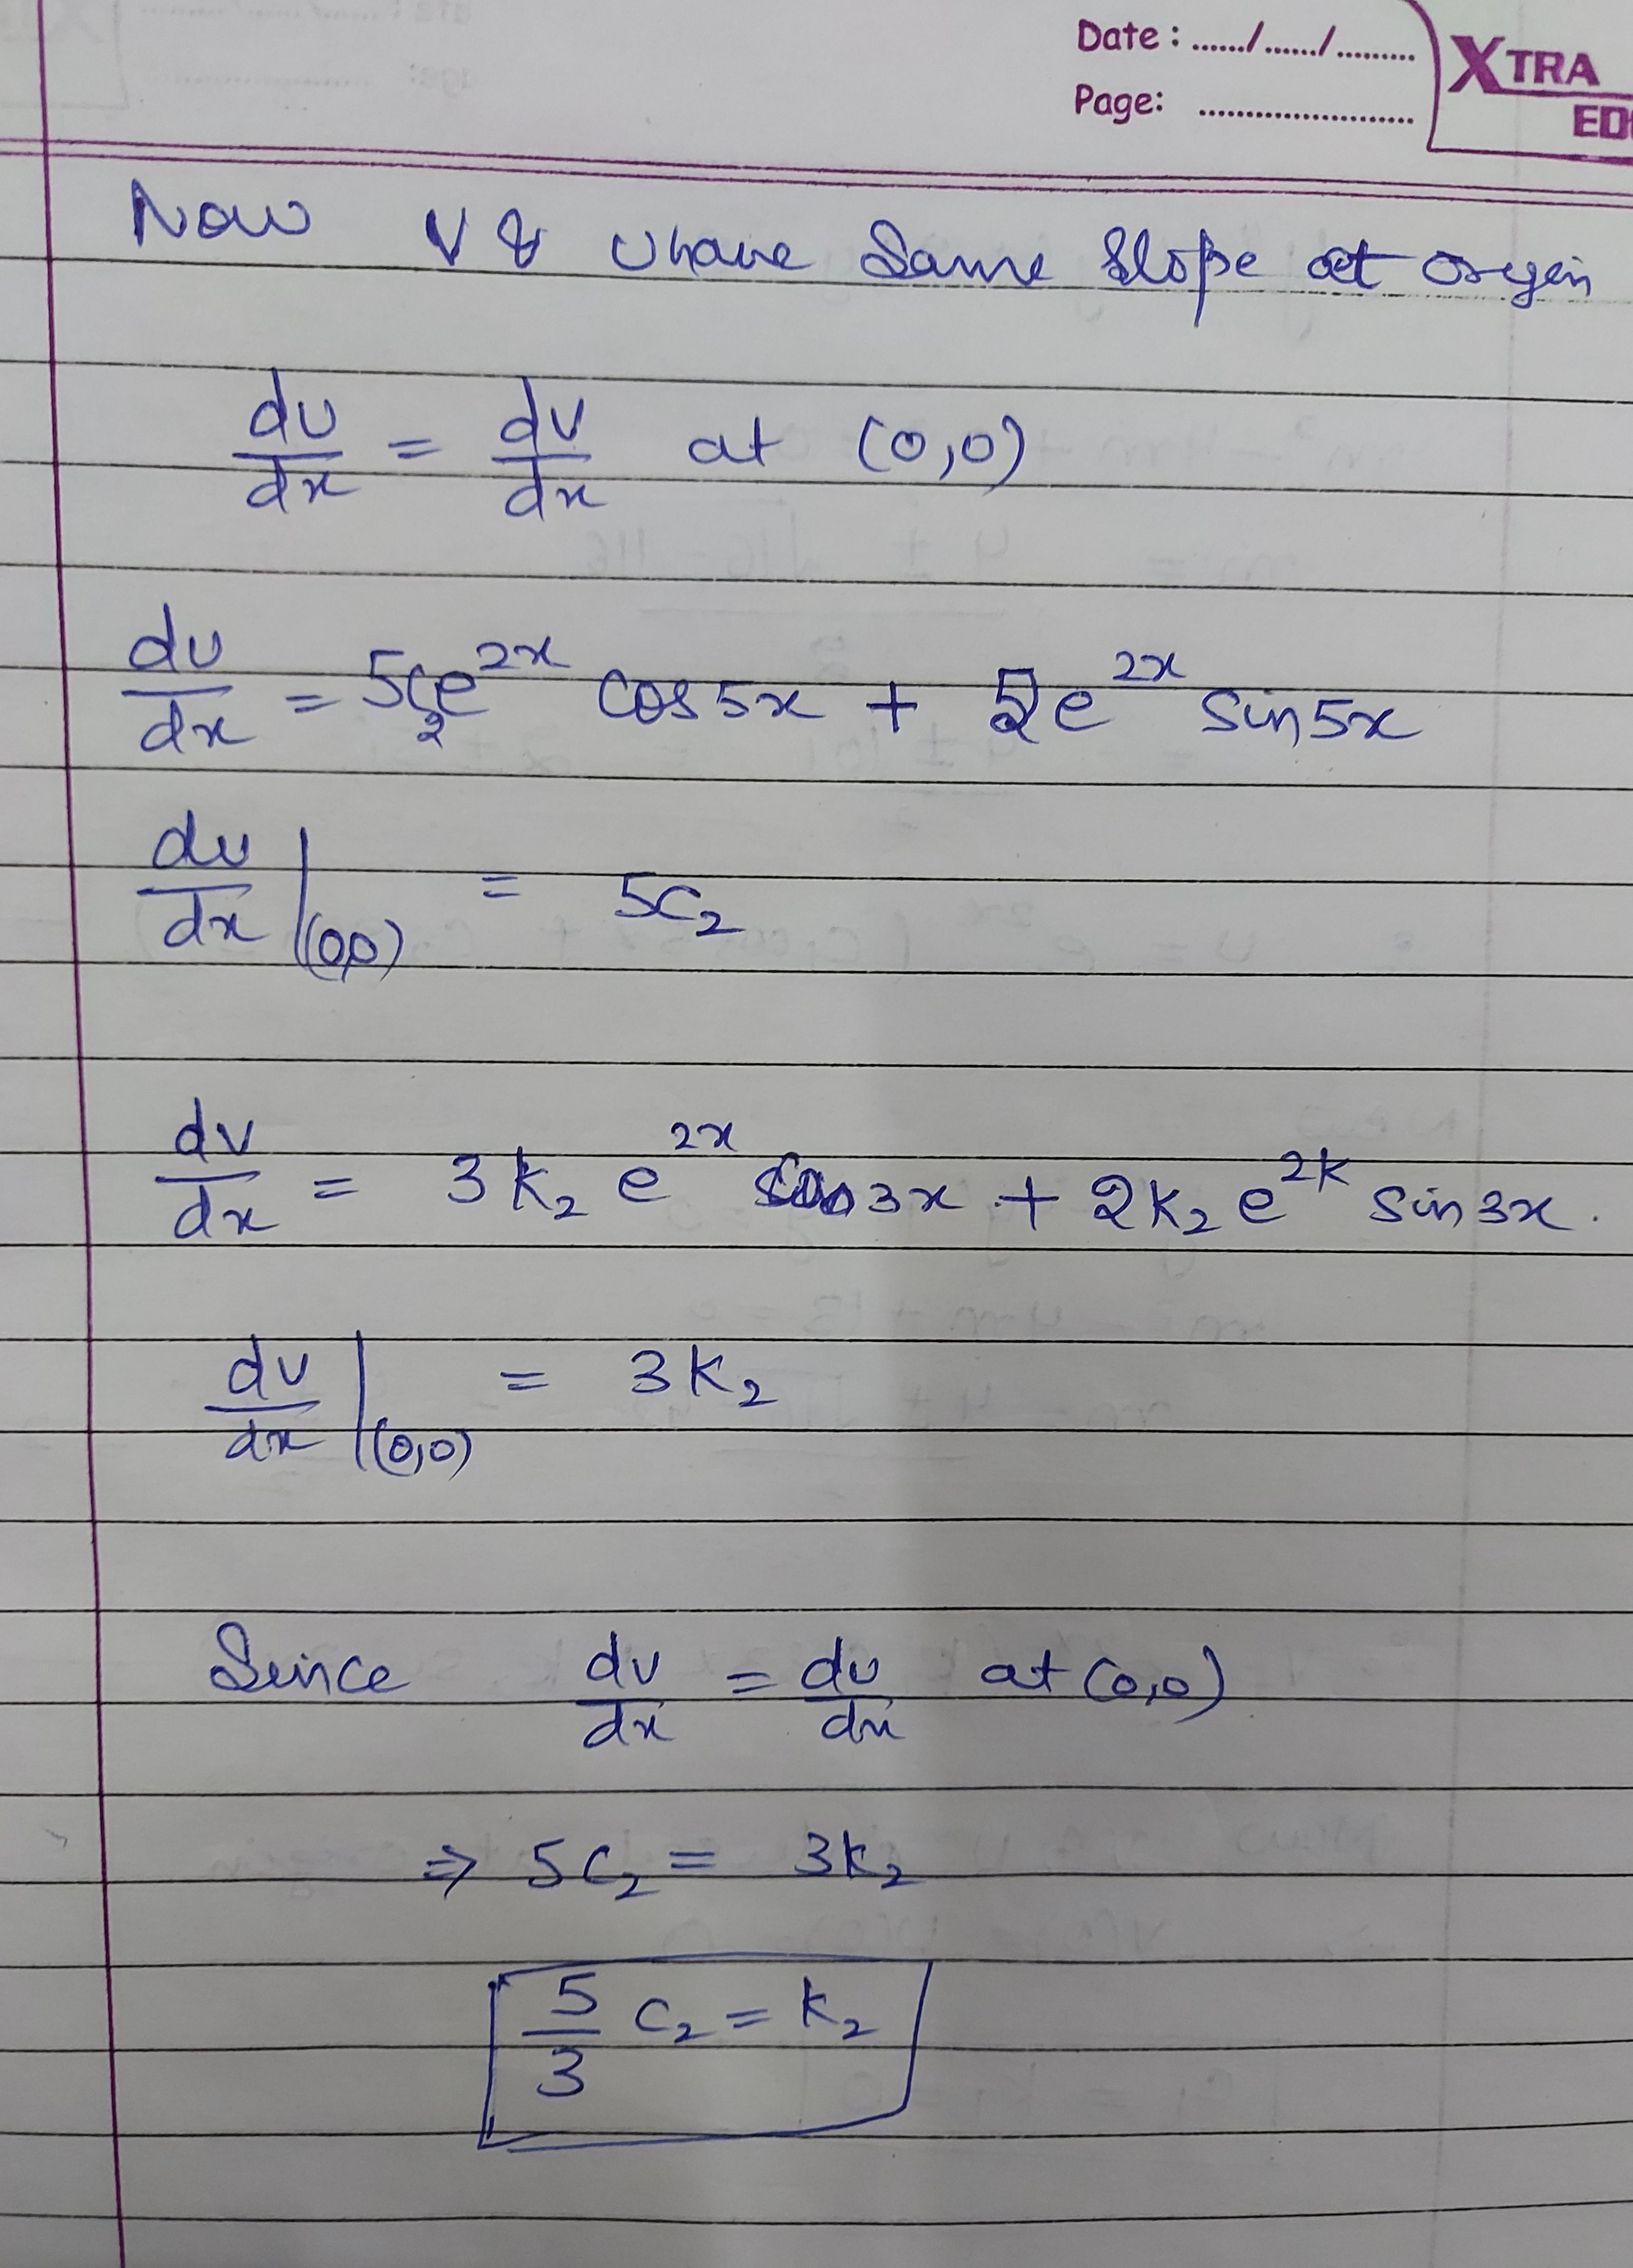 Date : ....../....../.........
Page: ........................
XTRA
ED
Now V & U have Same Slope at origin
du/dx = dv/dx at (0,0)
du/dx = 5c₂e^2x cos5x + 2e^2x sin5x
du/dx |(0,0) = 5c₂
dv/dx = 3k₂ e^2x cos3x + 2k₂ e^2k sin3x.
dv/dx |(0,0) = 3k₂
Since dv/dx = du/dx at (0,0)
⇒ 5c₂ = 3k₂
5/3 c₂ = k₂